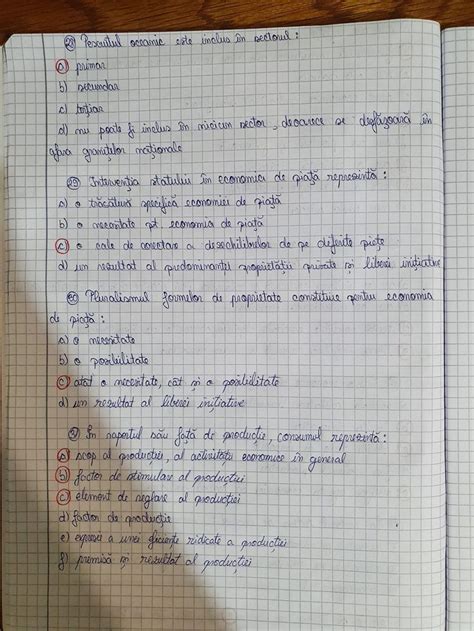 28 Pescuitul oceanic este inclus în sectorul :
a) primar
b) secundar
c) terțiar
d) nu poate fi inclus în niciun sector, deoarece se desfășoară în
afara granițelor naționale
29 Intervenția statului în economia de piață reprezintă :
a) o trăsătură specifică economiei de piață
b) o necesitate pt. economia de piață
c) o cale de corectare a dezechilibrelor de pe diferite piețe
d) un rezultat al predominanței proprietății private și liberei inițiative
30 Pluralismul formelor de proprietate constituie pentru economia
de piață :
a) o necesitate
b) o posibilitate
c) atât o necesitate, cât și o posibilitate
d) un rezultat al liberei inițiative
31 În raportul său față de producție, consumul reprezintă :
a) scop al producției, al activității economice în general
b) factor de stimulare al producției
c) element de reglare al producției
d) factor de producție
e) expresia unei eficiențe ridicate a producției
f) premisă și rezultat al producției